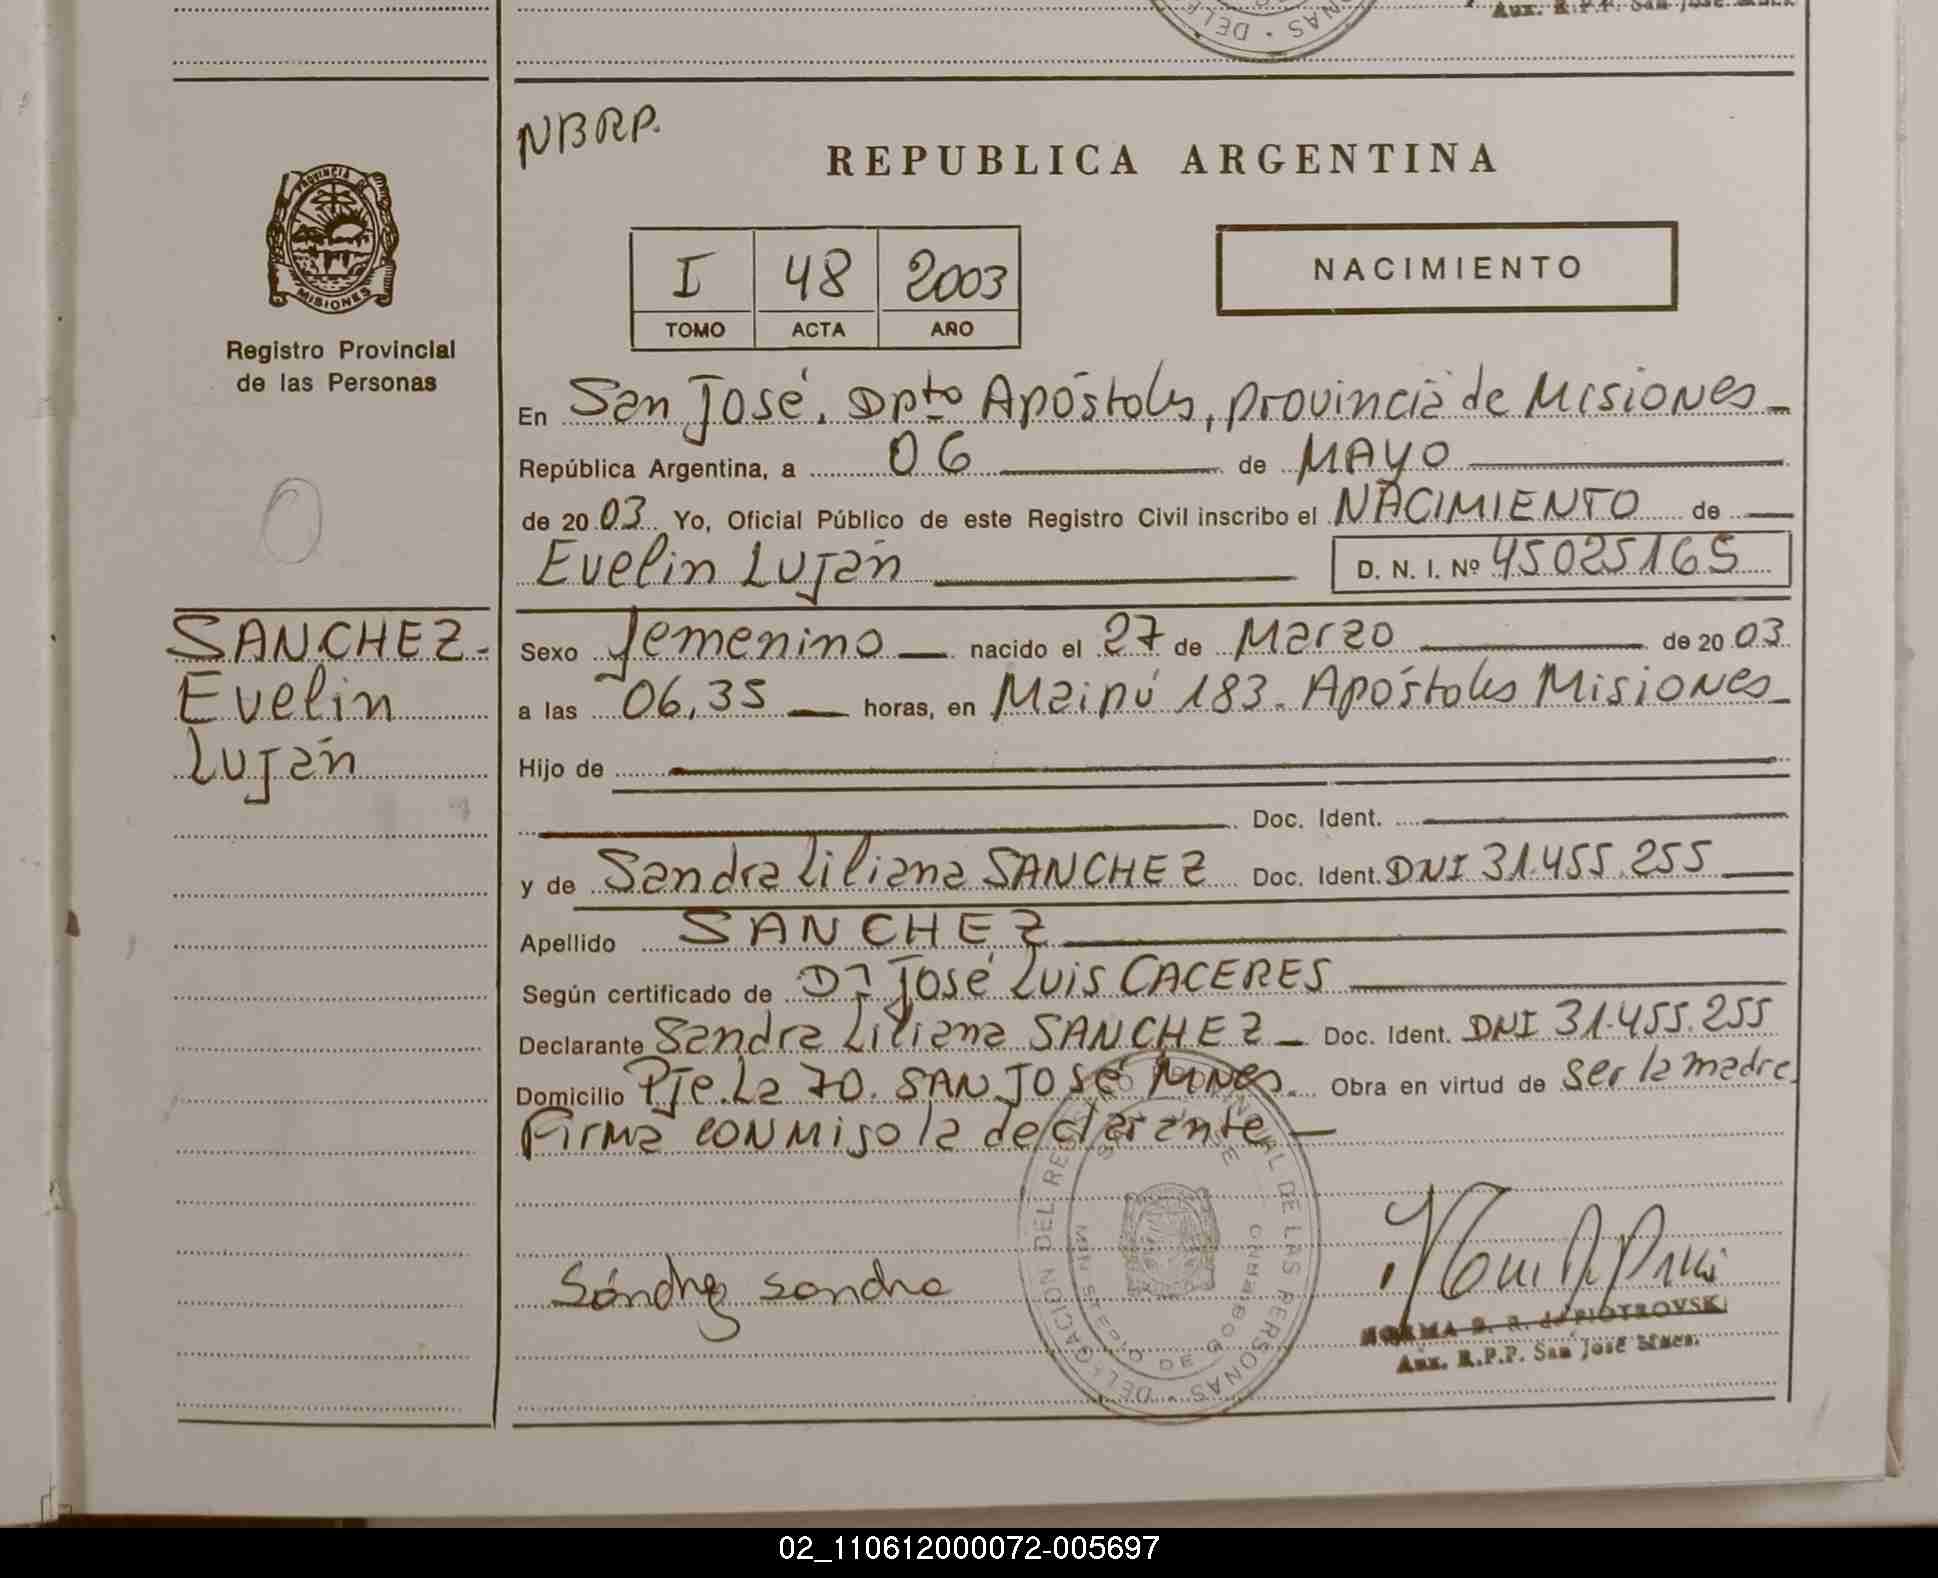 Aux. R.P.P. San José Mnes.
NBRP.
REPUBLICA ARGENTINA
PROVINCIA DE
MISIONES
I 48 2003
TOMO ACTA AÑO
NACIMIENTO
Registro Provincial
de las Personas
En San José, Dpto Apóstoles, provincia de Misiones
República Argentina, a 06 de MAYO
de 2003 Yo, Oficial Público de este Registro Civil inscribo el NACIMIENTO de
Evelin Luján D. N. I. Nº 45025165
SANCHEZ
Evelin
Luján
Sexo femenino nacido el 27 de Marzo de 2003
a las 06,35 horas, en Maipú 183. Apóstoles Misiones
Hijo de
Doc. Ident.
y de Sandra Liliana SANCHEZ Doc. Ident. DNI 31.455.255
Apellido SANCHEZ
Según certificado de Dr José Luis CACERES
Declarante Sandra Liliana SANCHEZ Doc. Ident. DNI 31.455.255
Domicilio Pje. La 70. SAN JOSé Mnes. Obra en virtud de ser la madre
Firma conmigo la declarante
DELEGACION DEL REGISTRO PROVINCIAL DE LAS PERSONAS
MINISTERIO DE GOBIERNO
Sánchez Sandra
NORMA B. R. de PIOTROVSKI
Aux. R.P.P. San José Mnes.
02_110612000072-005697